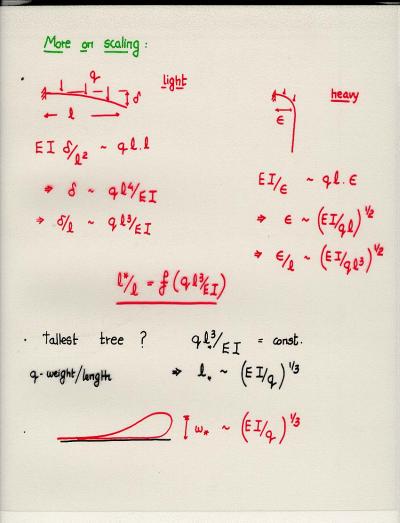 More on scaling:
q
light
δ
l
EI δ/l² ~ ql.l
⇒ δ ~ ql⁴/EI
⇒ δ/l ~ ql³/EI
heavy
ε
EI/ε ~ ql.ε
⇒ ε ~ (EI/ql)^1/2
⇒ ε/l ~ (EI/ql³)^1/2
l*/l = f(ql³/EI)
· Tallest tree ? ql*³/EI = const.
q-weight/length ⇒ l* ~ (EI/q)^1/3
w* ~ (EI/q)^1/3